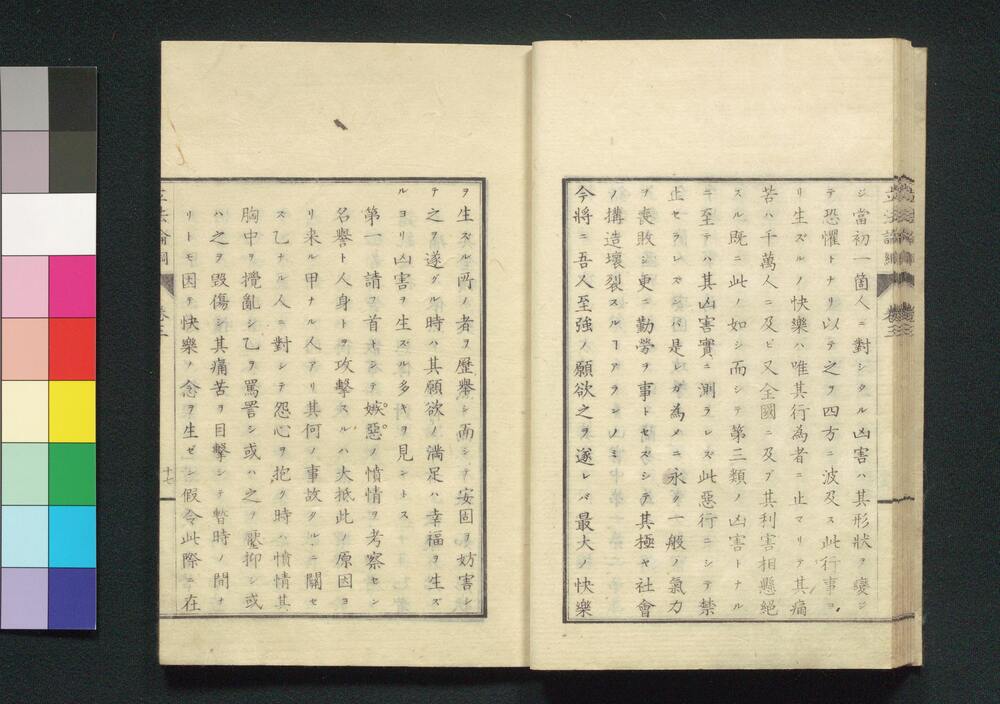 ジ當初一箇人ニ對シタル凶害ハ其形狀ヲ變ジ
テ恐懼トナリ以テ之ヲ四方ニ波及ス此行事ヨ
リ生ズルノ快樂ハ唯其行為者ニ止マリテ其痛
苦ハ千萬人ニ及ビ又全國ニ及ブ其利害相懸絕
スル既ニ此ノ如シ而シテ第三類ノ凶害トナル
ニ至テハ其凶害實ニ測ラレズ此惡行ニシテ禁
止セラレズンバ是レガ為メニ永ク一般ノ氣力
ヲ喪敗シ更ニ勤勞ヲ事トセズシテ其極ヤ社會
ノ搆造壞裂スルヿアランノミ
今將ニ吾人至強ノ願欲之ヲ遂レバ最大ノ快樂
ヲ生ズル所ノ者ヲ歷舉シ而シテ安固ヲ妨害シ
テ之ヲ遂グル時ハ其願欲ノ滿足ハ幸福ヲ生ズ
ルヨリ凶害ヲ生ズル多キヲ見ントス
第一請フ首トシテ嫉惡ノ憤情ヲ考察セン
名譽ト人身トヲ攻擊スルハ大抵此ノ原因ヨ
リ来ル甲ナル人アリ其何ノ事故タルニ關セ
ス乙ナル人ニ對シテ怨心ヲ抱ク時ハ憤情其
胸中ヲ攪亂シ乙ヲ罵詈シ或ハ之ヲ壓抑シ或
ハ之ヲ毀傷シ其痛苦ヲ目擊シテ暫時ノ間ナ
リトモ因テ快樂ノ念ヲ生ゼン假令此際ニ在
卷三
十七